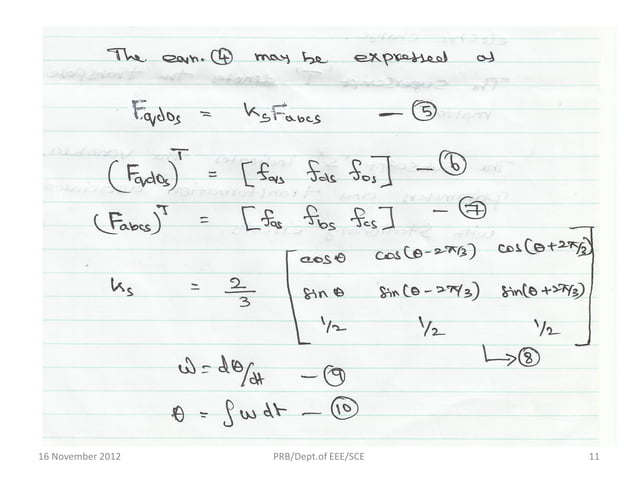 The eqn. ④ may be expressed as
Fqdos = KsFabcs — ⑤
(Fqdos)ᵀ = [fqs fds fos] — ⑥
(Fabcs)ᵀ = [fas fbs fcs] — ⑦
Ks = 2/3 [cosθ cos(θ-2π/3) cos(θ+2π/3)
sinθ sin(θ-2π/3) sin(θ+2π/3)
1/2 1/2 1/2] ↳ ⑧
ω = dθ/dt — ⑨
θ = ∫ωdt — ⑩
16 November 2012 PRB/Dept.of EEE/SCE 11